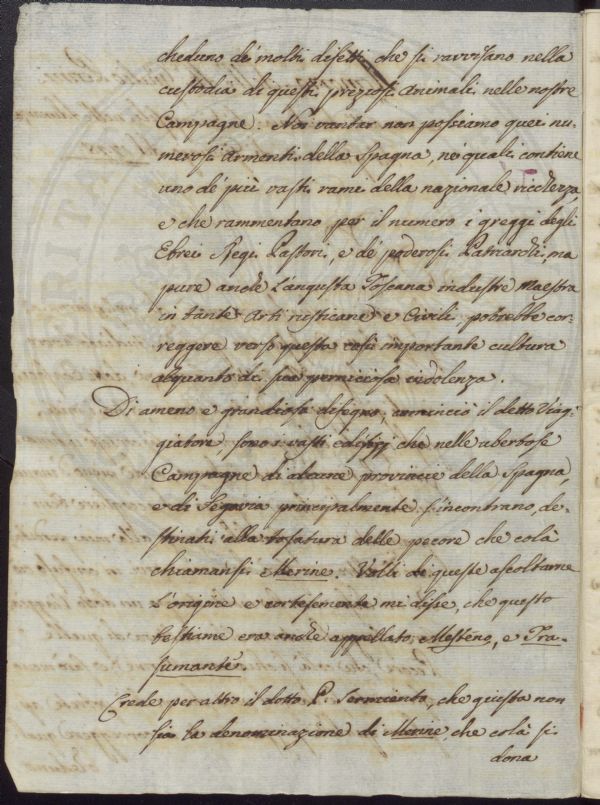 cheduno de' molti difetti che si ravvisano nella
custodia di questi preziosi animali nelle nostre
Campagne. Noi vantar non possiamo quei nu-
merosi armenti della Spagna, ne' quali contiene
uno de' più vasti rami della nazionale ricchezza,
e che rammentano per il numero i greggi degli
Ebrei Regi Pastori, e de' poderosi Patriarchi, ma
pure anche l'angusta Toscana industre maestra
in tante Arti rusticane e Civili potrebbe cor-
reggere verso questa così importante cultura
alquanto di sua perniciosa indolenza.
Di ameno e grandioso disegno, cominciò il detto Viag-
giatore, sono i vasti edifizj che nelle uberose
Campagne di alcune provincie della Spagna,
e di Segovia principalmente s'incontrano, de-
stinati alla tosatura delle pecore che colà
chiamansi Merine. Volli di queste ascoltarne
l'origine e cortesemente mi disse, che questo
bestiame era anche appellato Mesteno, e Tra-
sumante.
Crede per altro il dotto P. Sarmiento, che questa non
sia la denominazione di Merine, che colà si
dona